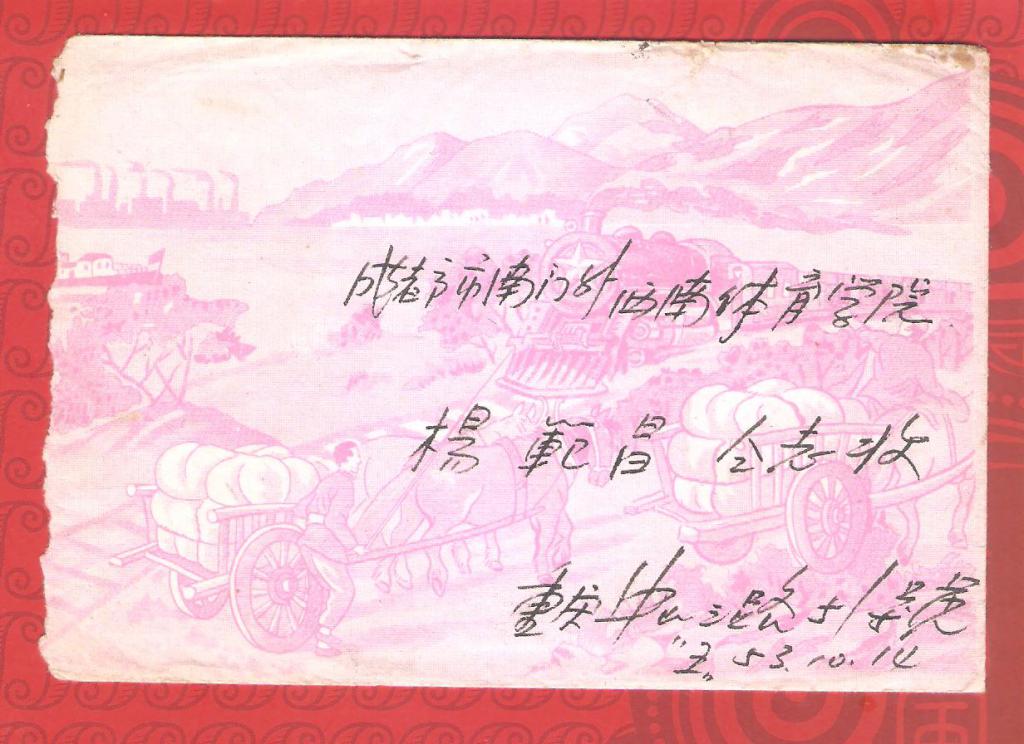 成都市南门外西南体育学院
楊範昌 仝志收
重庆中山三路51号
53.10.14